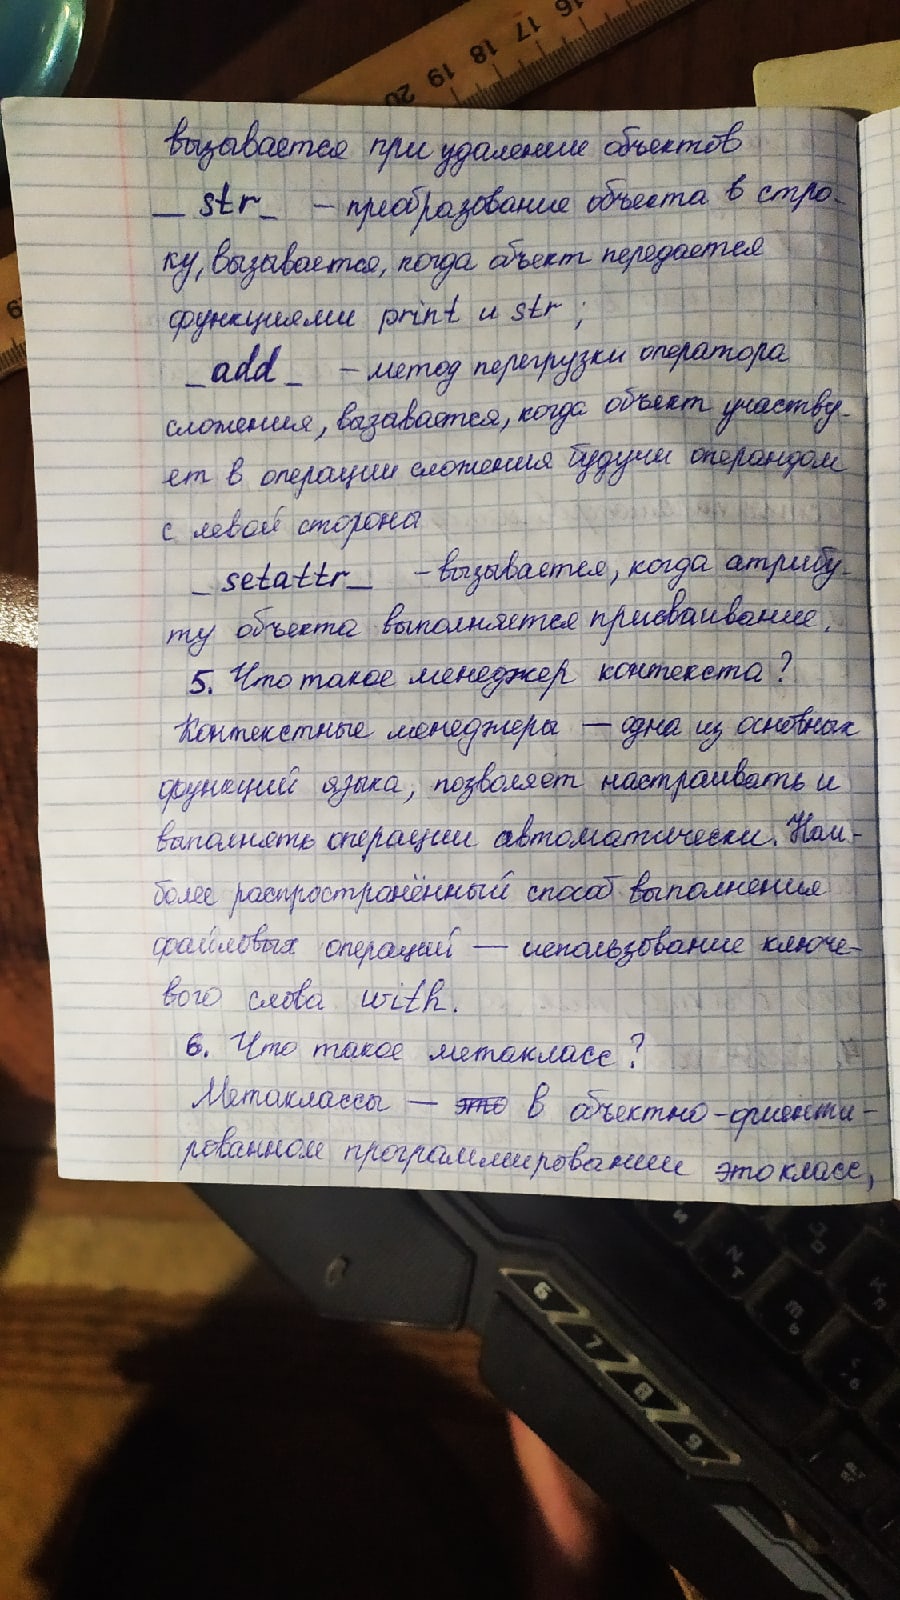 16
17
18
19
20
вызывается при удалении объектов
__ str_ – преобразование объекта в стро-
ку, вызывается, когда объект передается
функциями print и str ;
_add_ – метод перегрузки оператора
сложения, вызавается, когда объект участву-
ет в операции сложения будучи операндом
с левой стороны
_setattr_ – вызывается, когда атрибу-
ту объекта выполняется присваивание.
5. Что такое менеджер контекста?
Контекстные менеджеры — одна из основных
функций языка, позволяет настраивать и
выполнять операции автоматически. Наи-
более распространённый способ выполнения
файловых операций — использование ключе-
вого слова with.
6. Что такое метакласс?
Метаклассы — это в объектно-ориенти-
рованном программировании это класс,
6
7
8
9